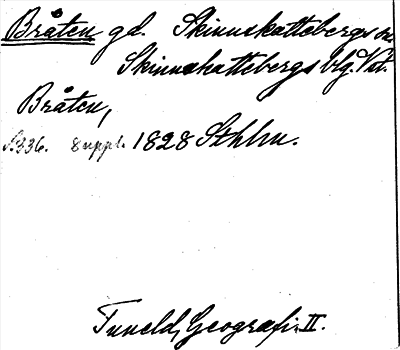 Bråten gd. Skinnskattebergs sn
Skinnskattebergs blg. Vstm.
Bråten,
s. 336. suppl. 1828 Sthlm.
Tuneld, Geografi. II.